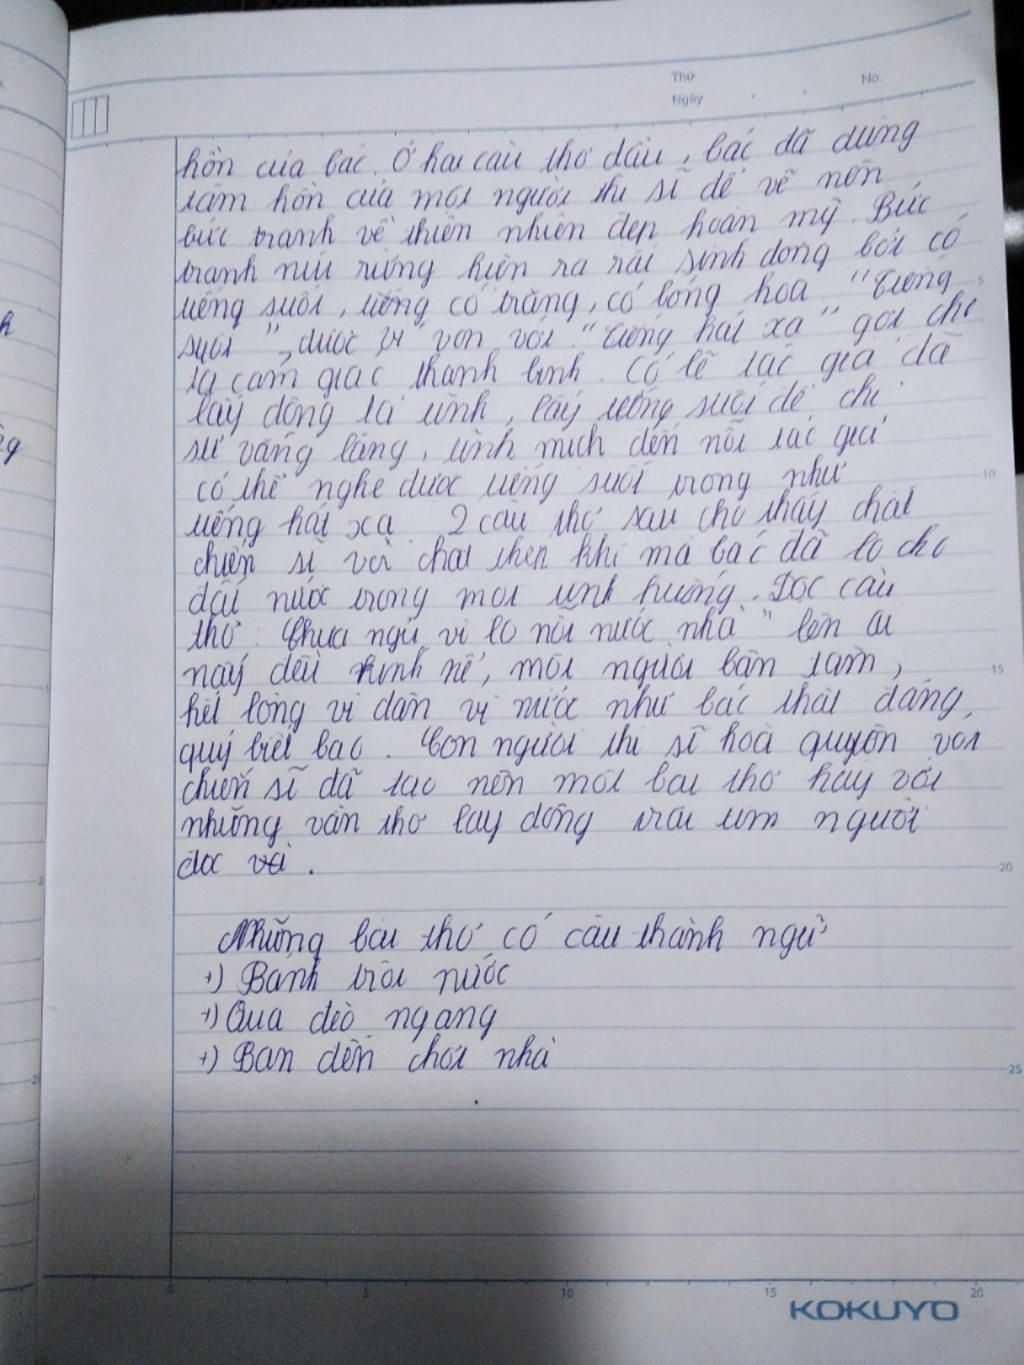 Thứ No.
Ngày . .
hồn của bác. Ở hai câu thơ đầu, bác đã dùng
tâm hồn của một người thi sĩ để vẽ nên
bức tranh về thiên nhiên đẹp hoàn mỹ. Bức
tranh núi rừng hiện ra rất sinh động bởi có
tiếng suối, tiếng có trăng, có bóng hoa "Tiếng
suối", được ví von với "tiếng hát xa" gợi cho
ta cảm giác thanh bình. Có lẽ tác giả đã
lấy động tả tĩnh, lấy tiếng suối để chỉ
sự vắng lặng, tĩnh mịch đến nỗi tác giả
có thể nghe được tiếng suối trong như
tiếng hát xa. 2 câu thơ sau cho thấy chất
chiến sĩ với chất thép khi mà bác đã lo cho
đất nước trong mọi tình huống. Đọc câu
thơ "Chưa ngủ vì lo nỗi nước nhà" lên ai
nấy đều kính nể, một người bận tâm,
hết lòng vì dân vì nước như bác thật đáng
quý biết bao. Con người thi sĩ hoà quyện với
chiến sĩ đã tạo nên một bài thơ hay với
những vần thơ lay động trái tim người
đọc
Những bài thơ có câu thành ngữ
+) Bánh trôi nước
+) Qua đèo ngang
+) Bạn đến chơi nhà
5
10
15
20
25
0 5 10 15 20
KOKUYO